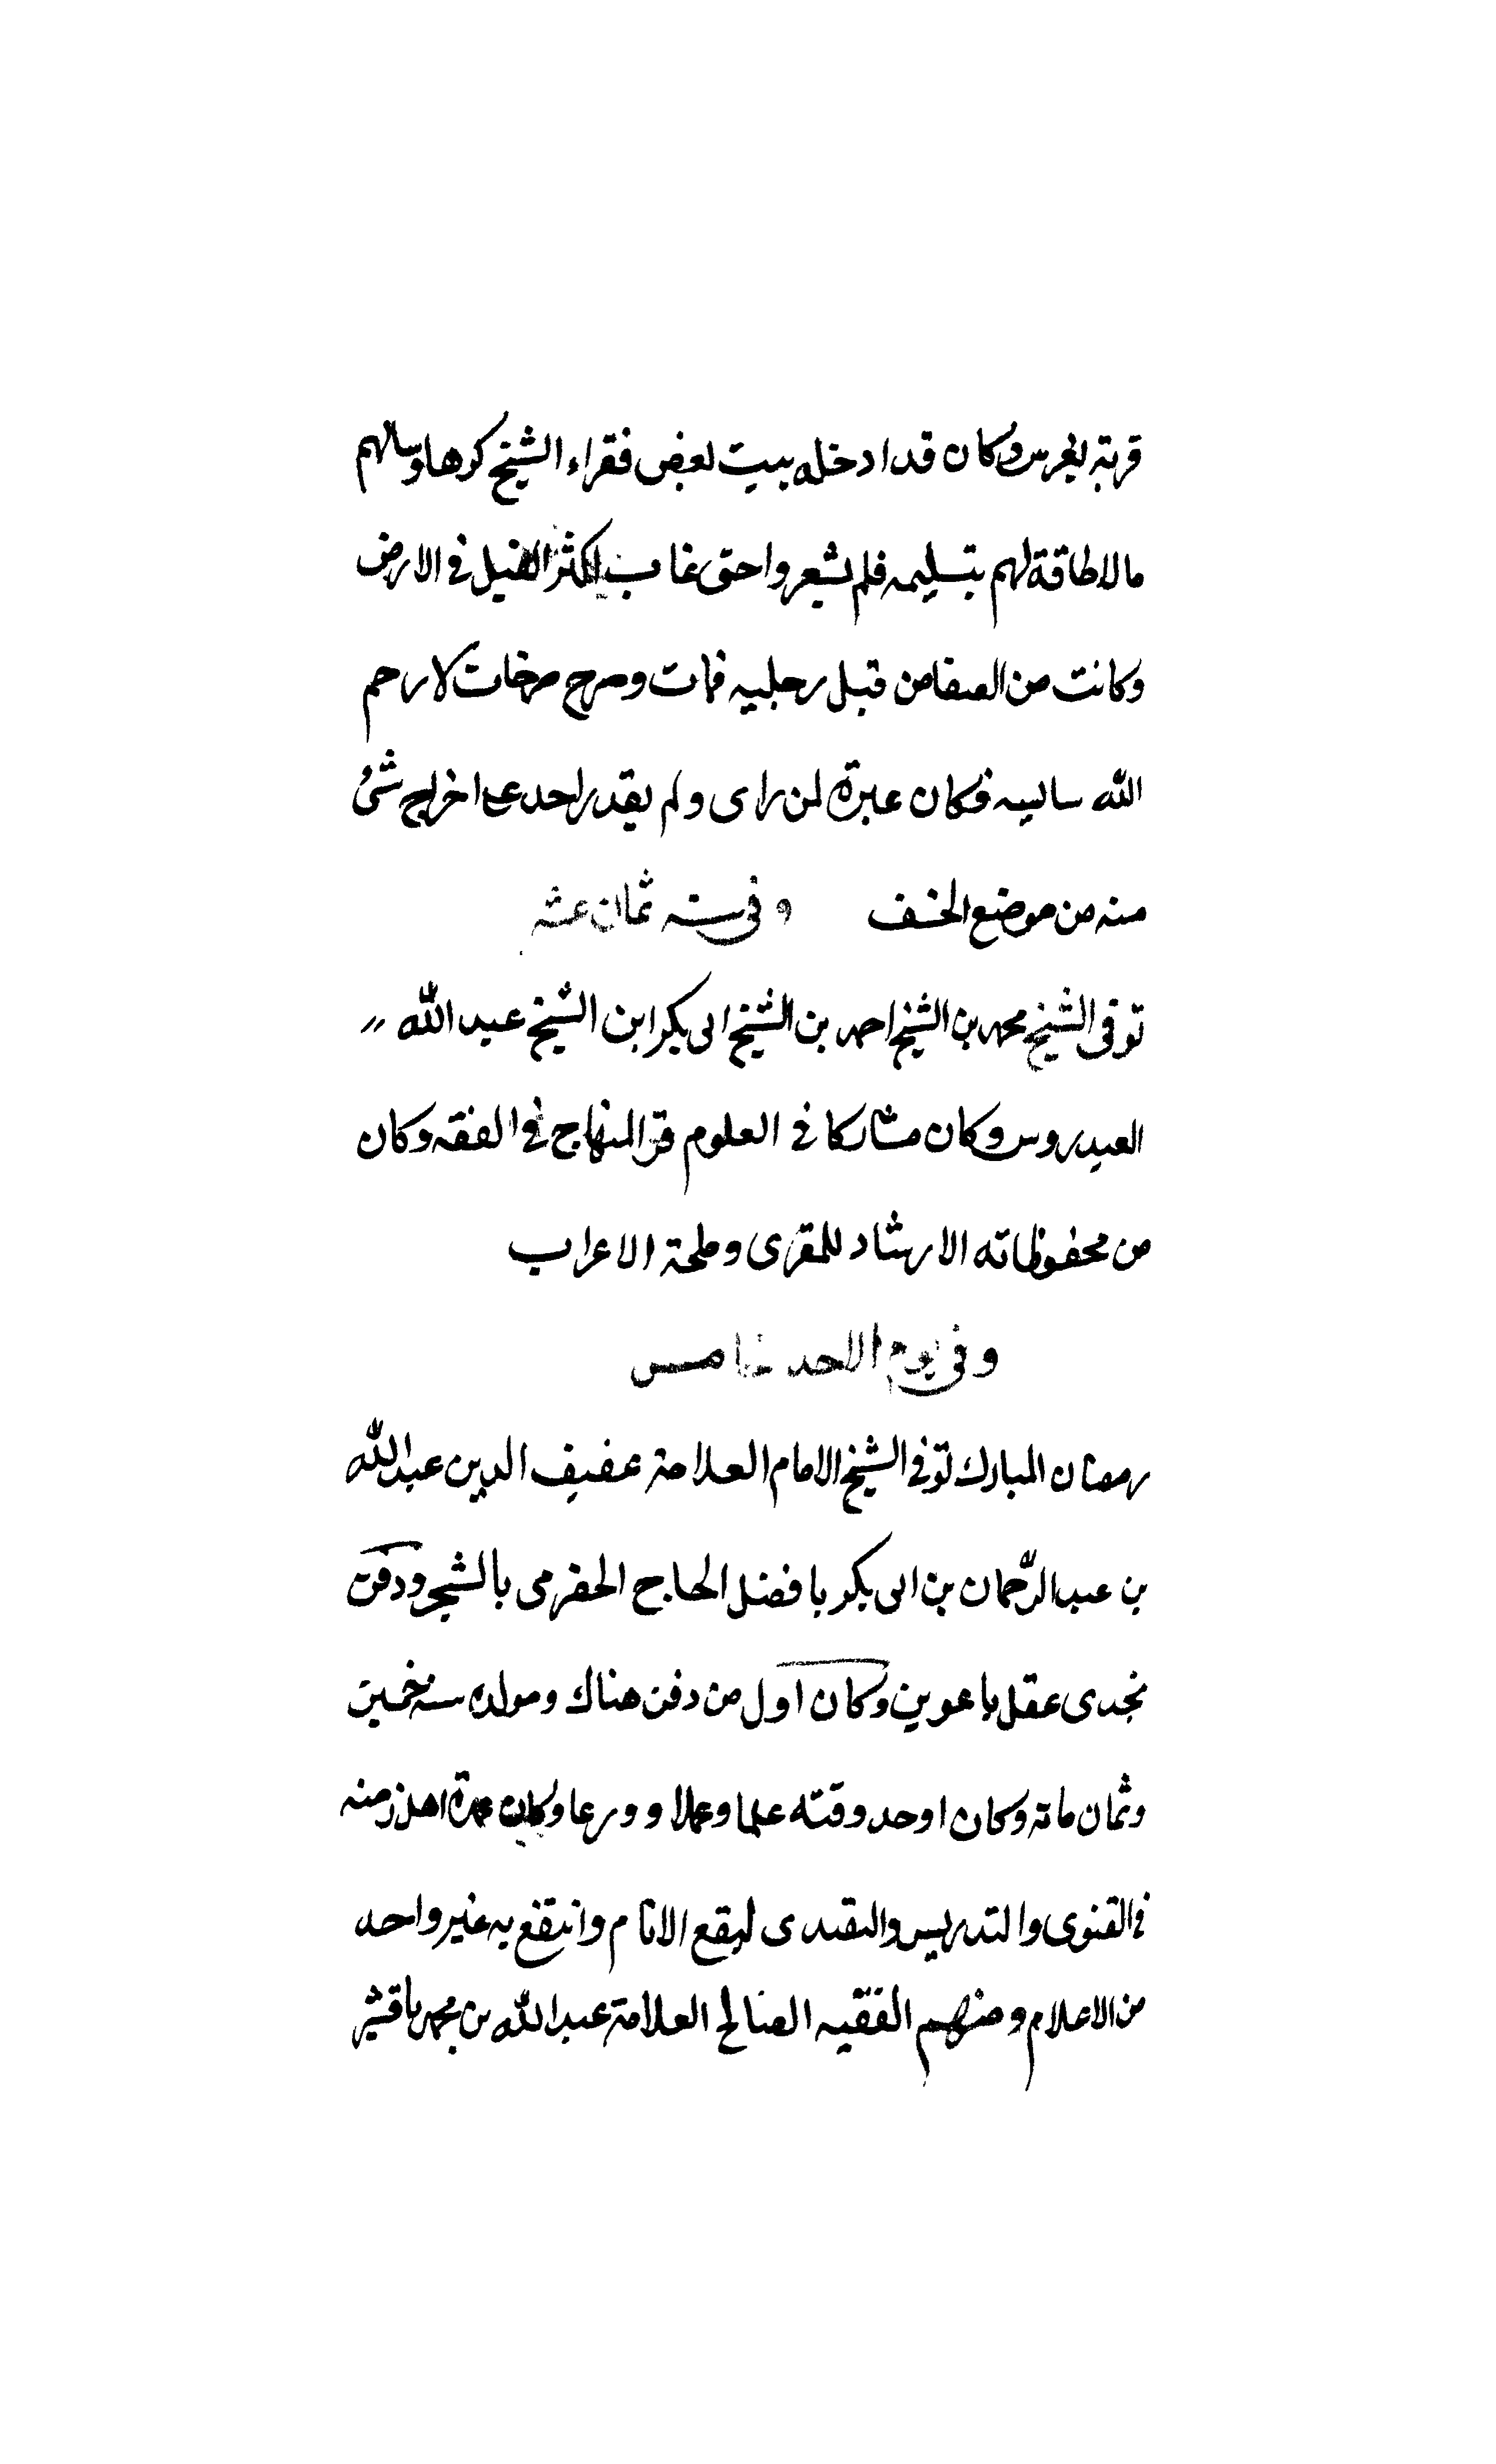 قربة يفرس وكان قد ادخله بيت بعض فقراء الشيخ كرها وسالهم
مالا طاقة لهم بتسليمه فلم يشعروا حتى غاب اكثر الفيل في الارض
وكانت من الصفا من قبل رجليه فمات وصرح صرخات لا رحم
الله سالبيه فكان عبرة لمن راى ولم يقدر احد على اخراج شئ
منه من موضع الخسف وفي سنه ثمان عشر
توفى الشيخ محمد بن الشيخ احمد بن الشيخ ابى بكر ابن الشيخ عبد الله
العيدروس وكان مشاركا في العلوم قرا المنهاج في الفقه وكان
من محفوظاته الارشاد للمقرى وملحة الاعراب
وفى يوم الاحد خامس
رمضان المبارك توفى الشيخ الامام العلامة عفيف الدين عبد الله
بن عبد الرحمان بن ابى بكر با فضل الحاج الحضرمى بالشحر ودفن
نجدى عقل باعوين وكان اول من دفن هناك ومولده سنه خمسين
وثمان مائة وكان اوحد وقته علما وعملا وورعا وكان عمدة اهل زمنه
في الفتوى والتدريس والتقدى لينفع الانام وانتفع به غير واحد
من الاعلام ومنهم الفقيه الصالح العلامة عبد الله بن محمد باقشير